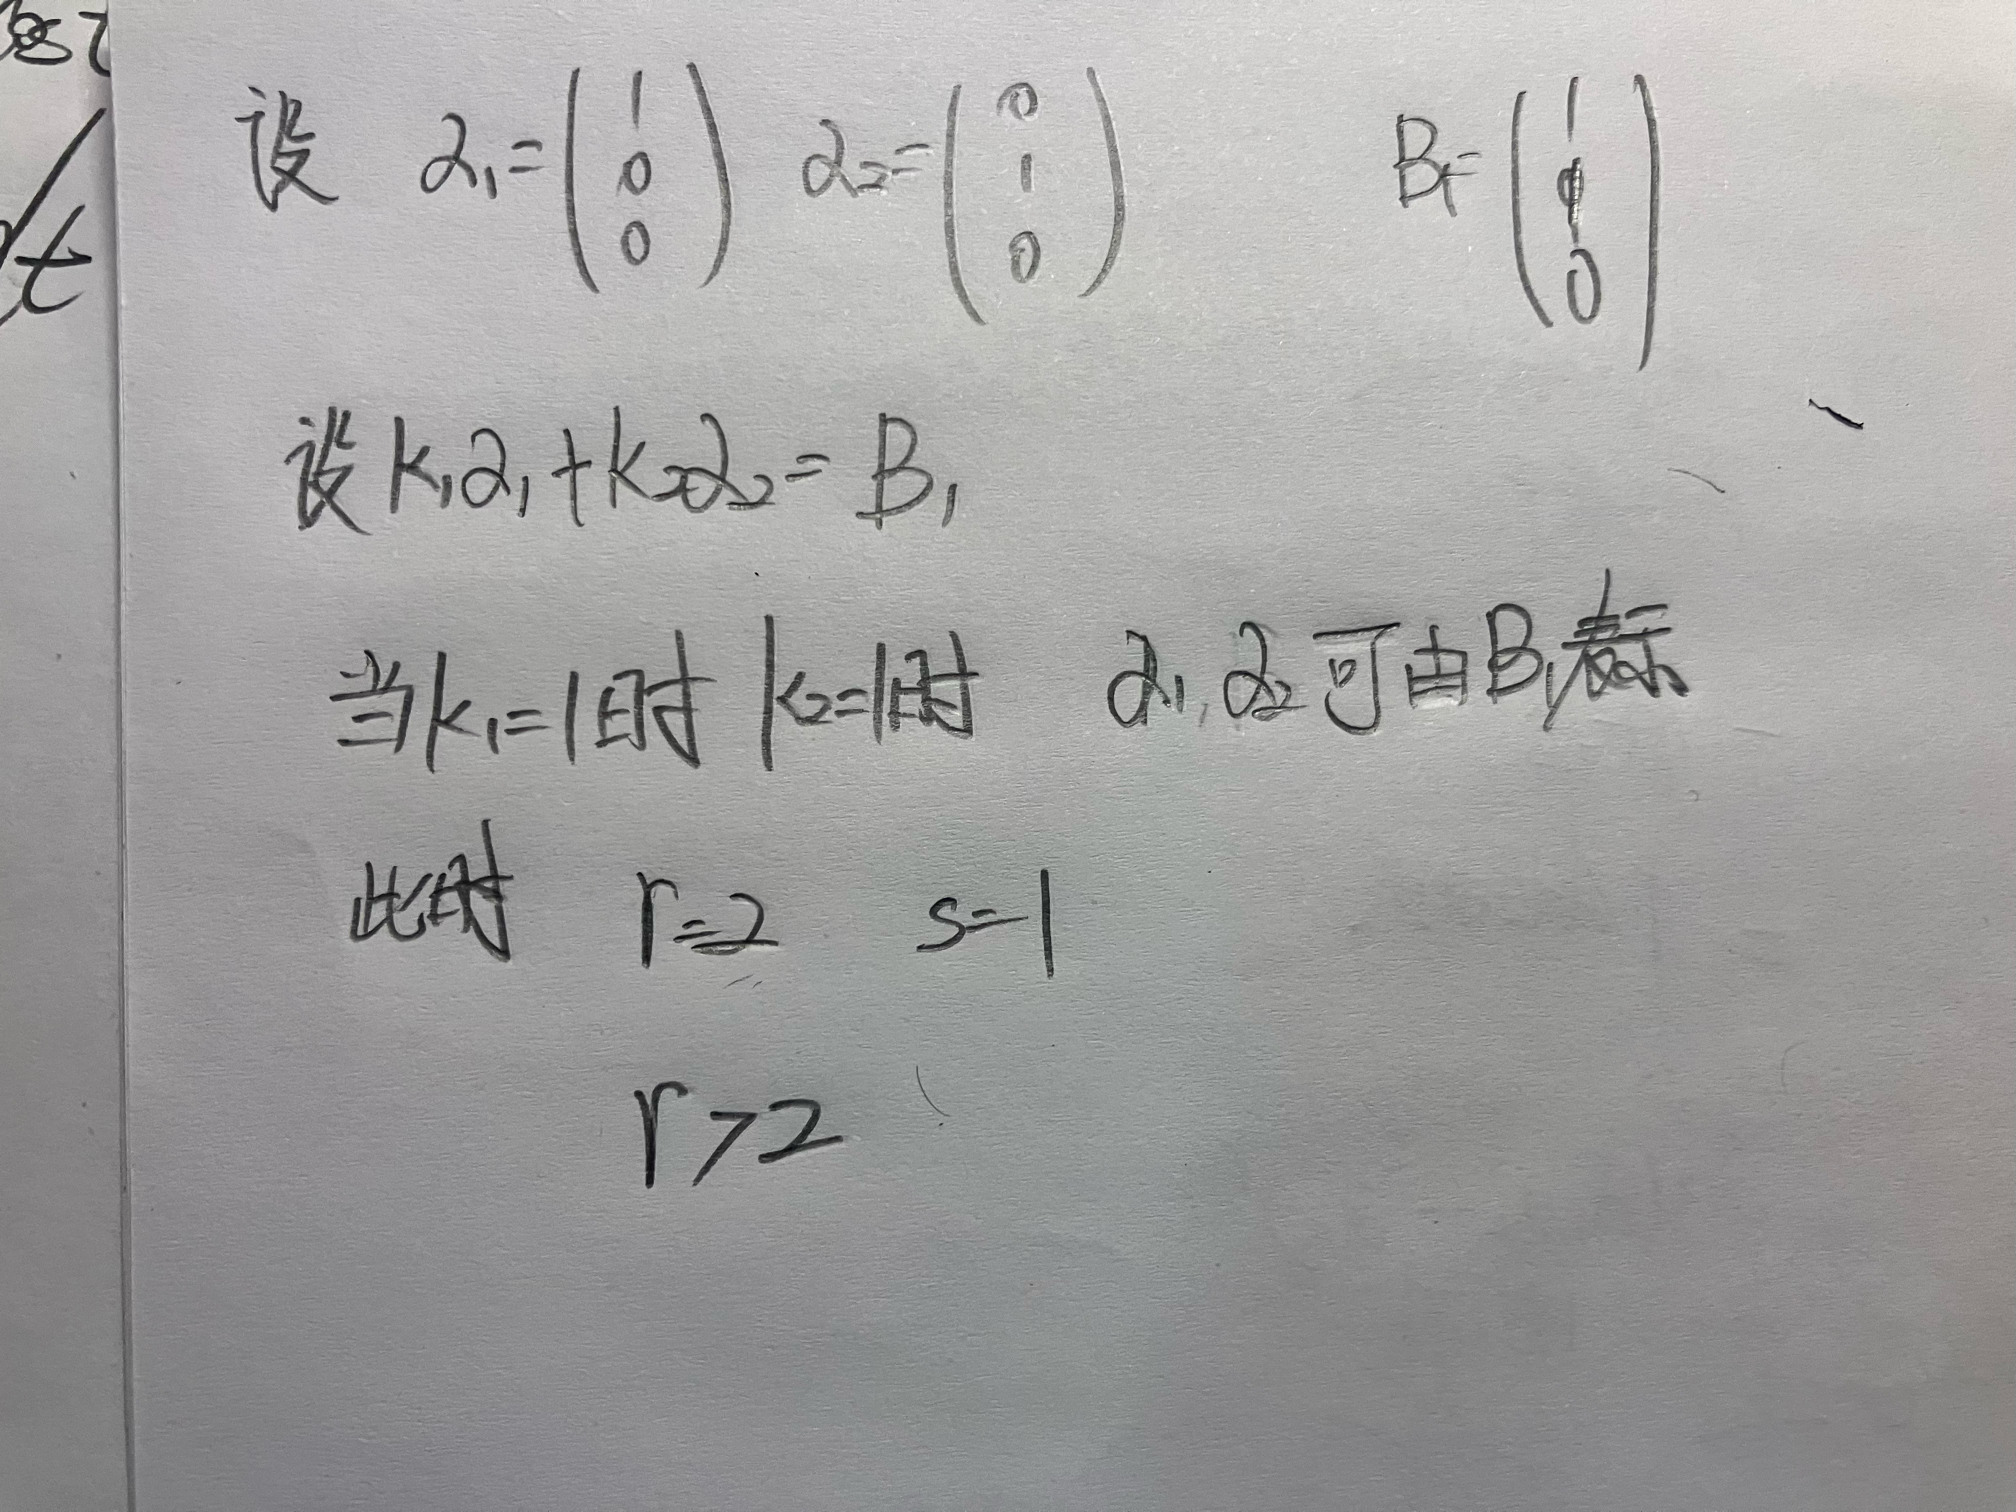 设 α₁=(1 0 0) α₂=(0 1 0) B₁=(1 1 0)
设k₁α₁+k₂α₂=B₁
当k₁=1时 k₂=1时 α₁,α₂可由B₁表示
此时 r=2 s=1
r>2